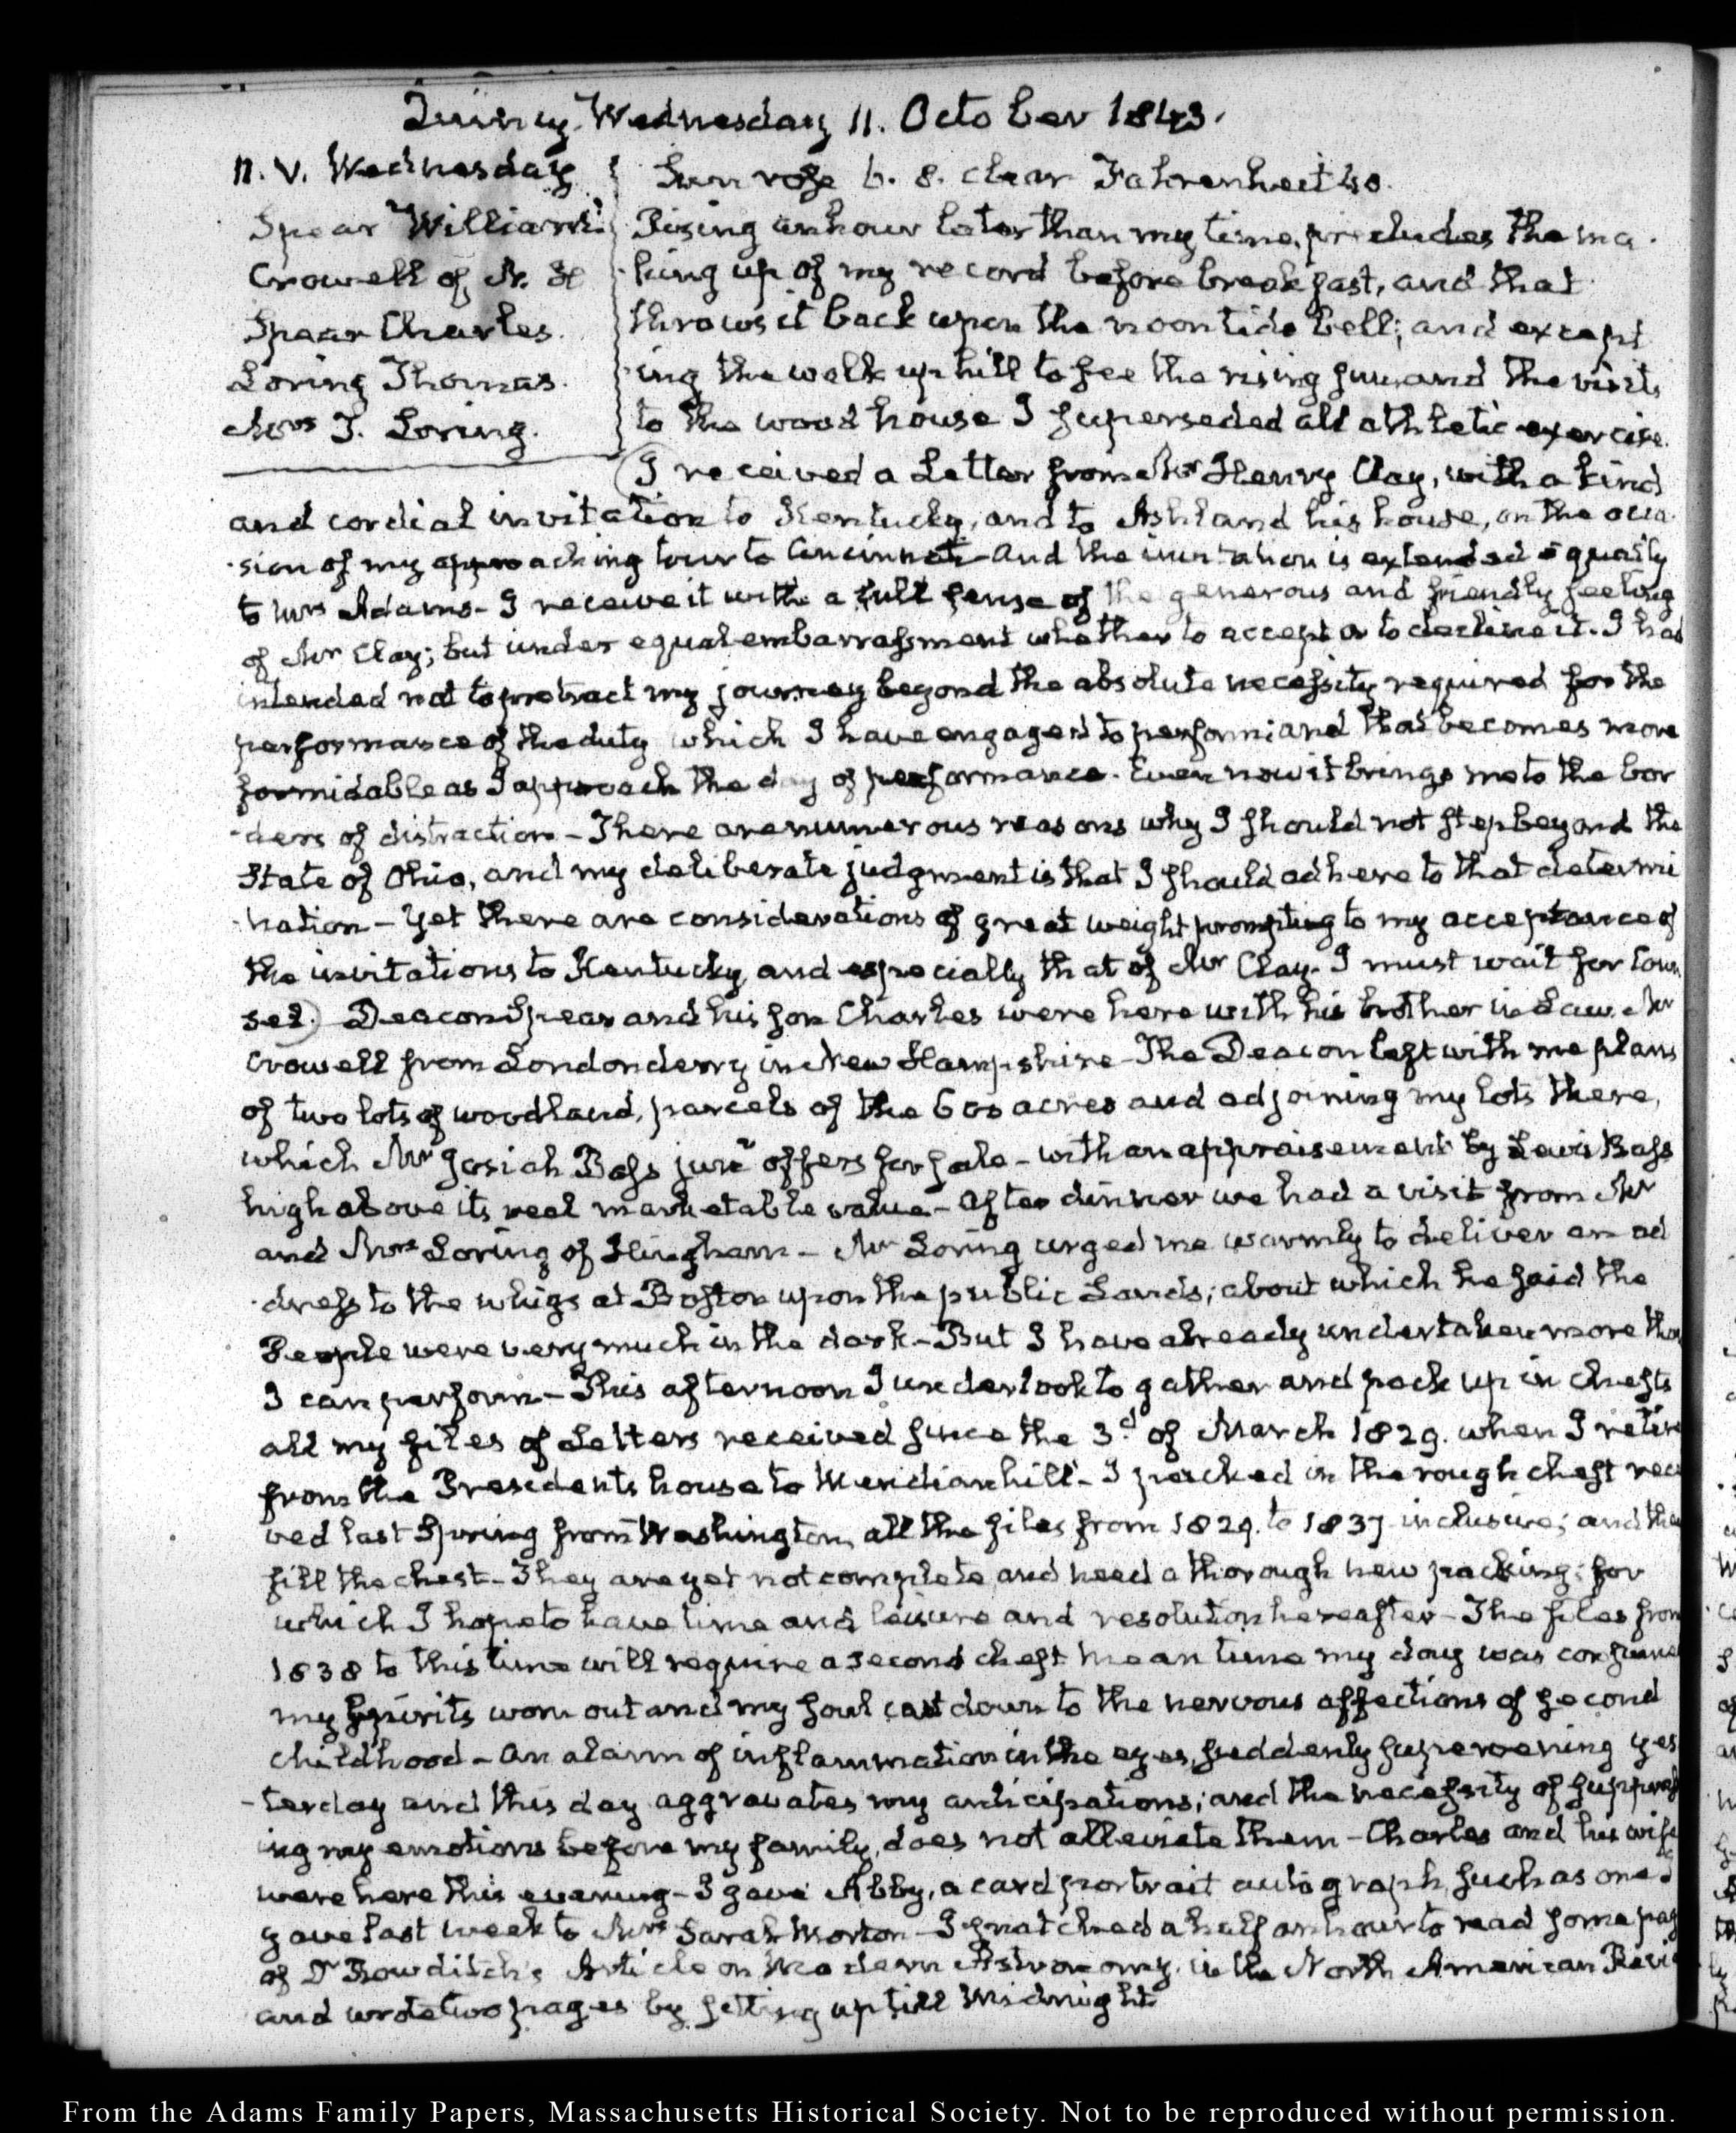 Quincy Wednesday 11. October 1843.
11. V. Wednesday
Spear William
Crowell of N. H
Spear Charles.
Loring Thomas.
Mrs T. Loring.
Sun rose 6. 8. clear Fahrenheit 40.
Rising an hour later than my time, precludes the ma-
-king up of my record before breakfast, and that
throws it back upon the noon tide bell; and except
-ing the walk up hill to see the rising sun, and the visits
to the wood house I superseded all athletic exercise.
(I received a Letter from Mr Henry Clay, with a kind
and cordial invitation to Kentucky, and to Ashland his house, on the occa-
-sion of my approaching tour to Cincinnati- and the invitation is extended equally
to Mrs Adams- I receive it with a full sense of the generous and friendly feeling
of Mr Clay; but under equal embarrassment whether to accept or to decline it. I had
intended not to protract my journey beyond the absolute necessity required for the
performance of the duty which I have engaged to perform; and that becomes more
formidable as I approach the day of performance. Even now it brings me to the bor
-ders of distraction- There are numerous reasons why I should not step beyond the
State of Ohio, and my deliberate judgment is that I should adhere to that determi
-nation- Yet there are considerations of great weight prompting to my acceptance of
the invitations to Kentucky, and especially that of Mr Clay- I must wait for coun
sel.) Deacon Spear and his son Charles were here with his brother in Law Mr
Crowell from Londonderry in New Hampshire- The Deacon left with me plans
of two lots of woodland, parcels of the 600 acres and adjoining my lots there,
which Mr Josiah Bass junr offers for sale- with an appraisement by Lewis Bass
high above its real marketable value- After dinner we had a visit from Mr
and Mrs Loring of Hingham- Mr Loring urged me warmly to deliver an ad
-dress to the whigs at Boston upon the public Lands; about which he said the
People were very much in the dark- But I have already undertaken more than
I can perform- This afternoon I undertook to gather and pack up in chests
all my files of Letters received since the 3d of March 1829. when I retire
from the Presidents house to Meridian hill- I packed in the rough chest recei
ved last Spring from Washington, all the files from 1829. to 1837 inclusive; and they
fill the chest- They are yet not complete and need a thorough new packing; for
which I hope to have time and leisure and resolution hereafter- The files from
1838 to this time will require a second chest mean time my day was consumed
my spirits worn out and my soul cast down to the nervous affections of second
childhood- An alarm of inflammation in the eyes, suddenly supervening yes
-terday and this day aggravates my anticipations; and the necessity of suppress
ing my emotions before my family, does not alleviate them- Charles and his wife
were here this evening- I gave Abby, a card portrait autograph, such as one I
gave last week to Mrs Sarah Morton- I snatched a half an hour to read some pag
of Dr Bowditch's Article on Modern Astronomy, in the North American Revie
and wrote two pages by sitting up till Midnight
From the Adams Family Papers, Massachusetts Historical Society. Not to be reproduced without permission.